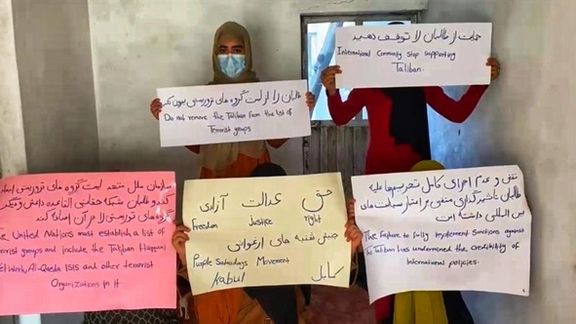 حمایت از طالبان را توقف دهید
International Community stop supporting
Taliban.
طالبان را از لست گروه های تروریستی بیرون نکنید
Do not remove the Taliban from the list of
Terrorist groups
سازمان ملل متحد لیست گروه های تروریستی ایجاد
کند و طالبان شبکه حقانی القاعده داعش و دیگر
گروه های تروریستی را در آن اضافه کند
The United Nations must establish a list of
terrorist groups and include the Taliban Haqqani
Network, Al-Qaeda ISIS and other terrorist
Organizations in it
حق عدالت آزادی
Freedom Justice right
جنبش شنبه های ارغوانی
Purple Saturdays Movement
Kabul کابل
نقض و عدم اجرای کامل تحریم ها علیه
طالبان تاثیر گذاری منفی بر اعتبار سیاست های
بین المللی داشته است
The Failure to fully implement Sanctions against
the Taliban has undermined the credibility of
international policies.